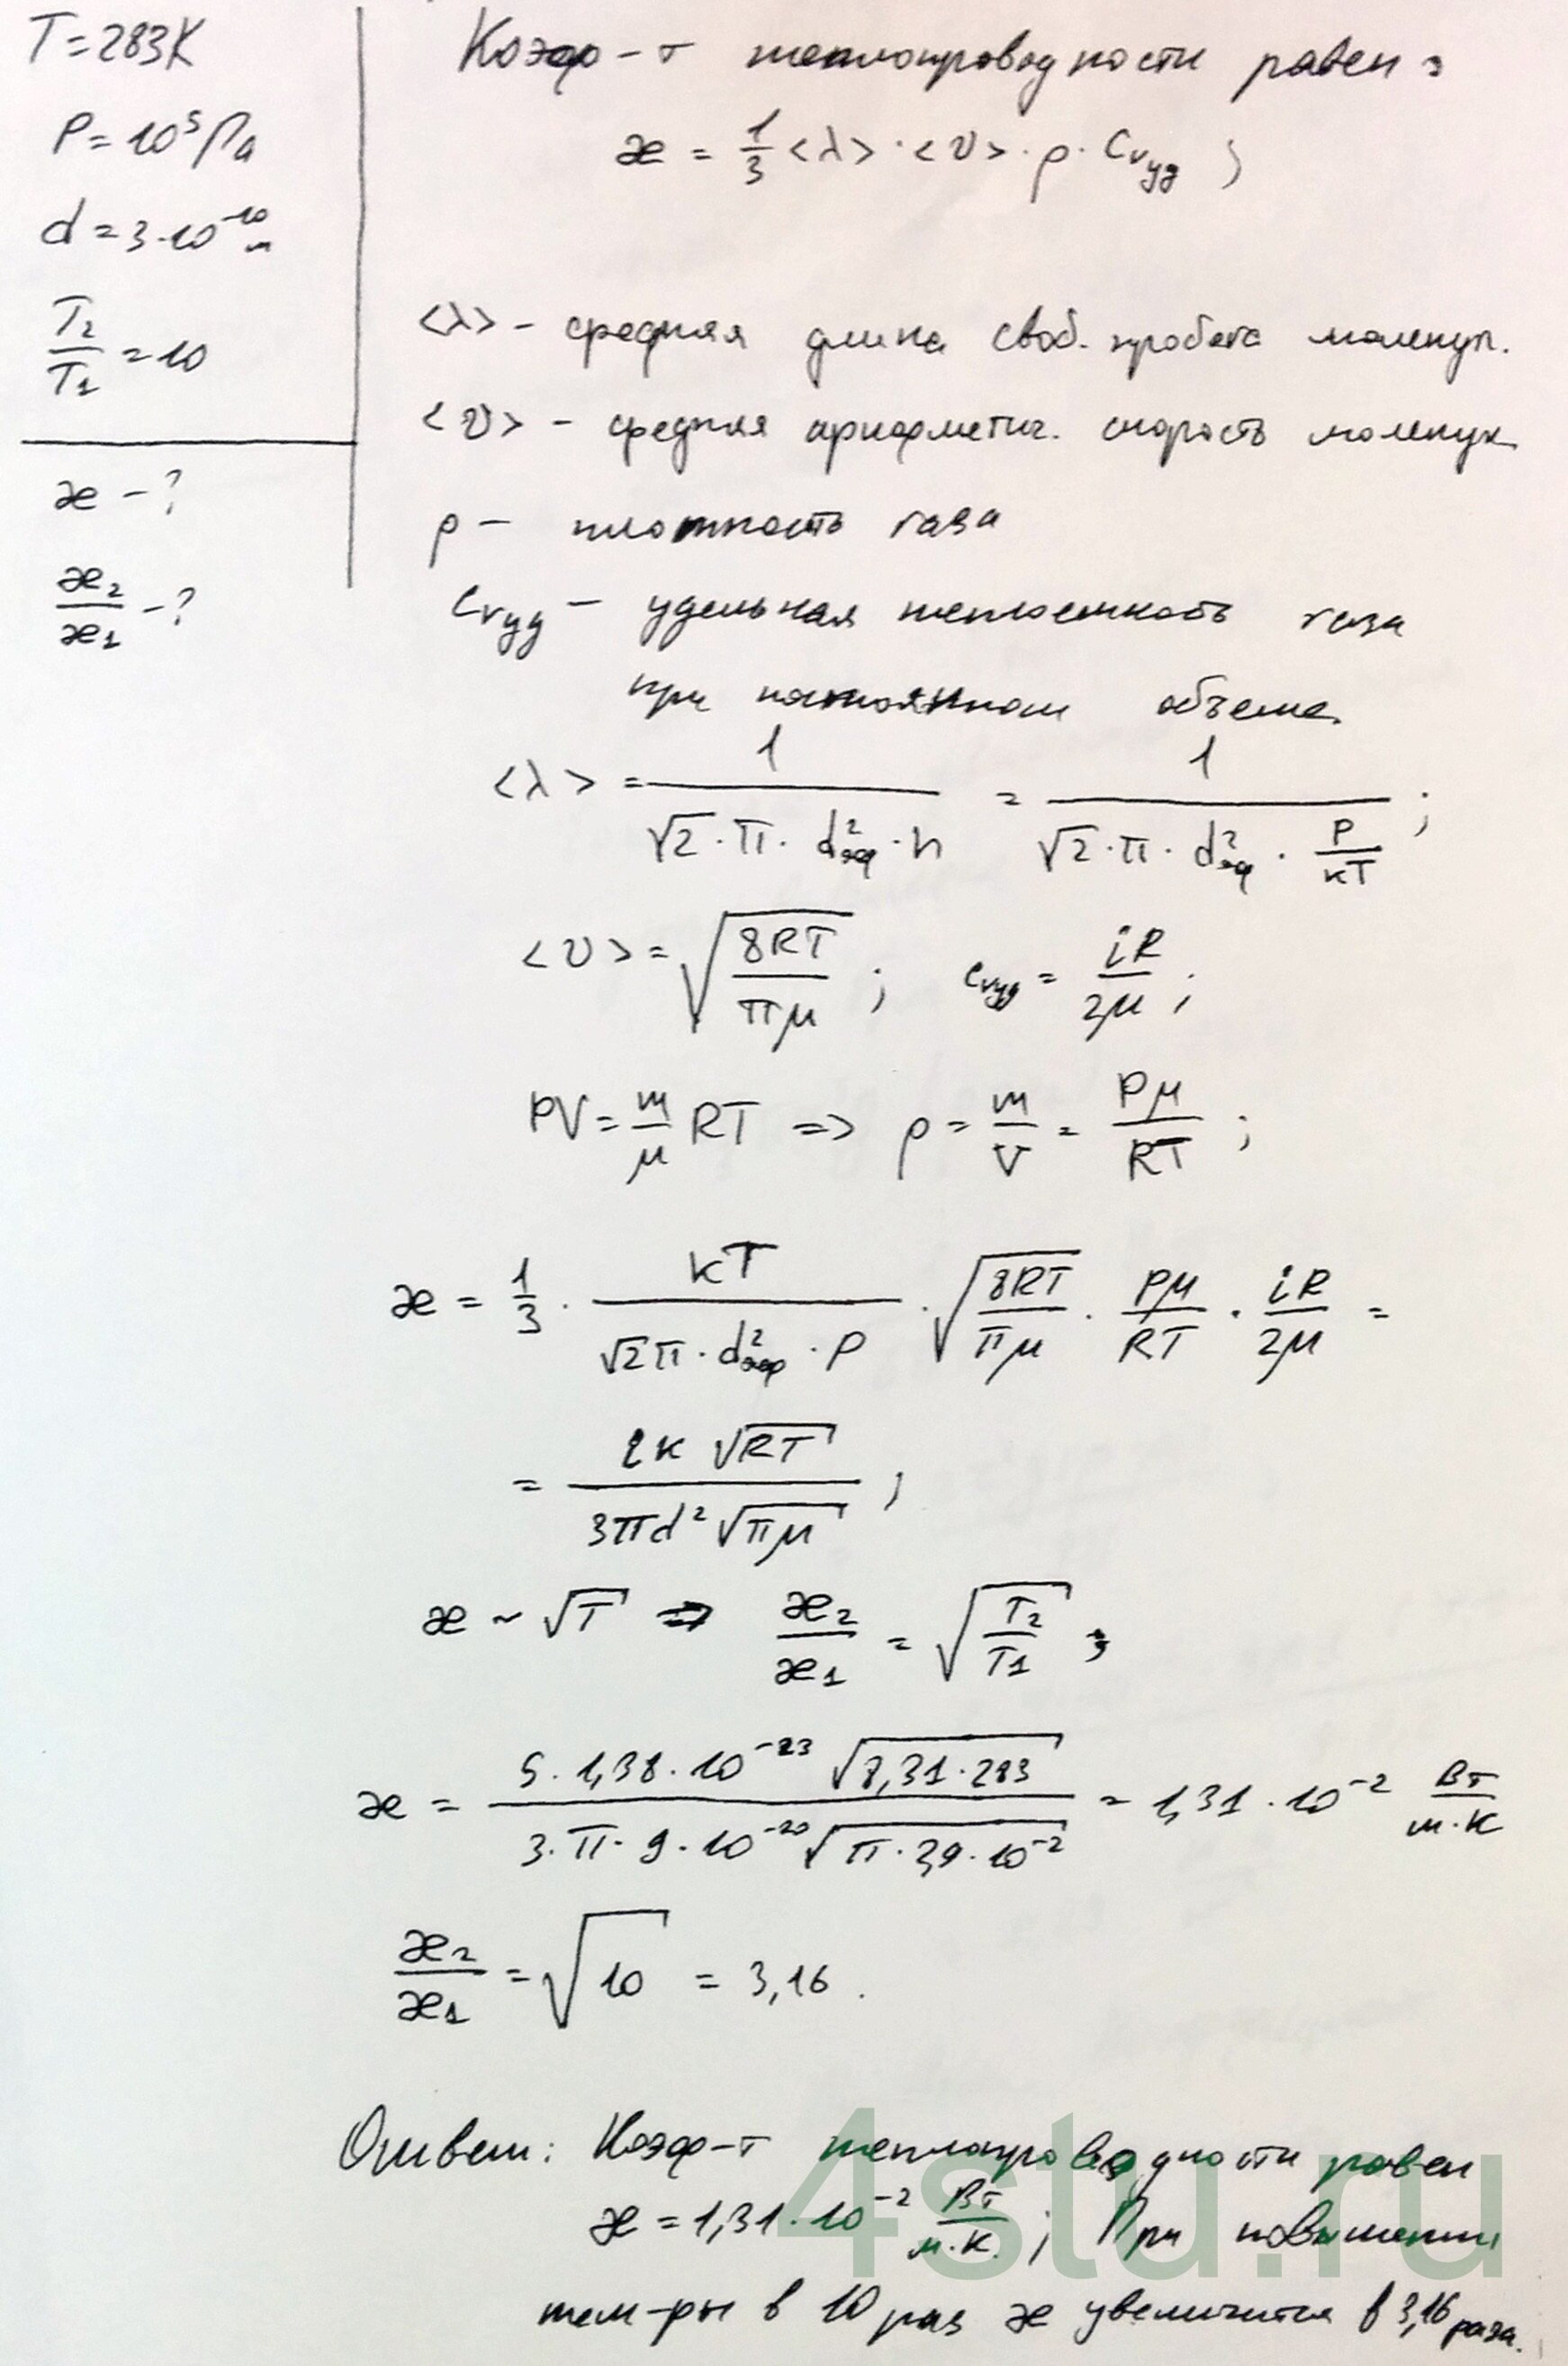 T=283K
P=10⁵Па
d=3·10⁻¹⁰м
T₂/T₁=10
æ-?
æ₂/æ₁-?
Коэф-т теплопроводности равен:
æ = 1/3 <λ>·<υ>·ρ·Cᵥуд ;
<λ> - средняя длина своб. пробега молекул.
<υ> - средняя арифметич. скорость молекул
ρ - плотность газа
Cᵥуд - удельная теплоемкость газа
при постоянном объеме.
<λ> = 1/(√2·π·d²эф·n) = 1/(√2·π·d²эф·P/(кT)) ;
<υ> = √(8RT/(πμ)) ; Cᵥуд = iR/(2μ) ;
PV = m/μ RT => ρ = m/V = Pμ/(RT) ;
æ = 1/3 · кT/(√2π·d²эф·P) · √(8RT/(πμ)) · Pμ/(RT) · iR/(2μ) =
= iк√(RT)/(3πd²√(πμ)) ;
æ ~ √T => æ₂/æ₁ = √(T₂/T₁) ;
æ = 5·1,38·10⁻²³√(8,31·283)/(3·π·9·10⁻²⁰√(π·2,9·10⁻²)) = 1,31·10⁻² Вт/(м·К)
æ₂/æ₁ = √10 = 3,16.
Ответ: Коэф-т теплопроводности равен
æ = 1,31·10⁻² Вт/(м·К.) ; При повышении
тем-ры в 10 раз æ увеличится в 3,16 раза.
4stu.ru